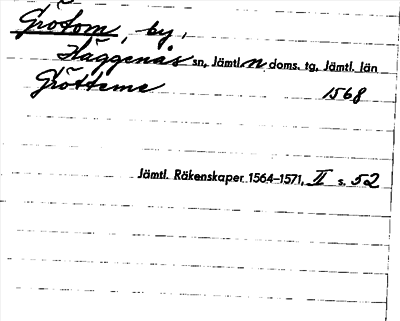 Grötom, by,
Häggenås sn, Jämtl. n. doms. tg, Jämtl. län
Grötteme 1568
Jämtl. Räkenskaper 1564-1571, II s. 52